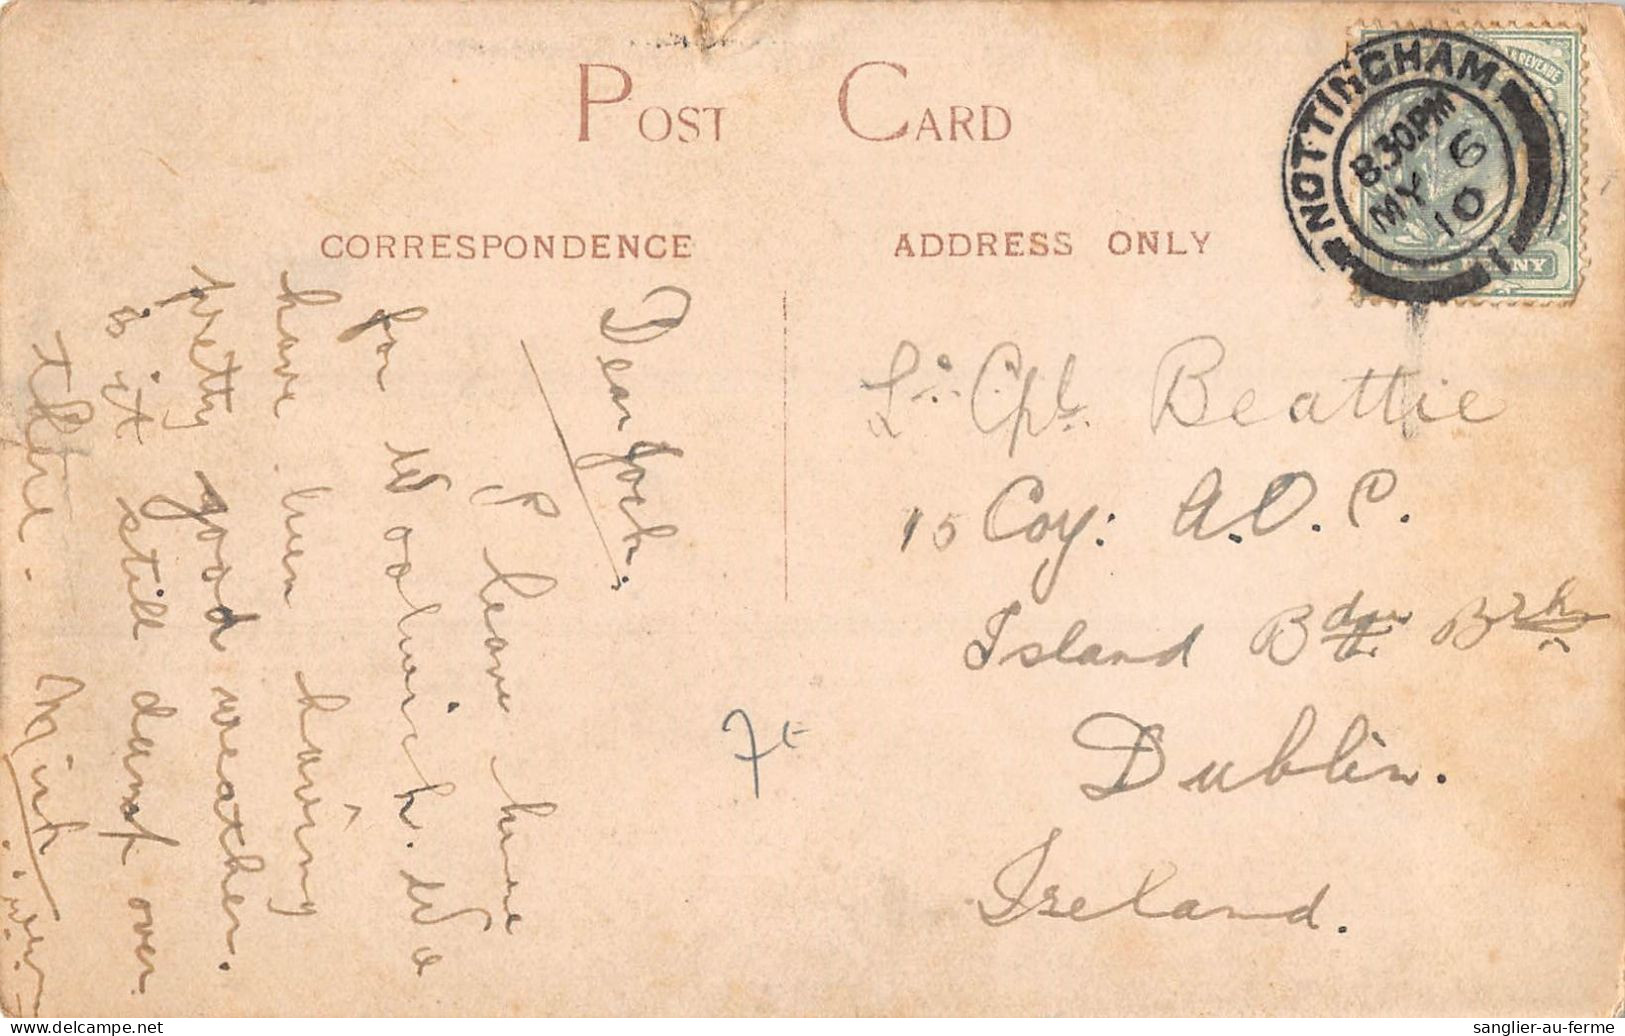 POST CARD
CORRESPONDENCE
ADDRESS ONLY
NOTTINGHAM
8.30PM
MY 6
10
1
REVENUE
HALFPENNY
Dear Jock.
I leave here
for Woolwich. We
have been having
pretty good weather.
is it still damp over
there.
Lce. Cpl. Beattie
15 Coy: A.O.C.
Island Bdge Brks
Dublin.
Ireland.
7€
sanglier-au-ferme